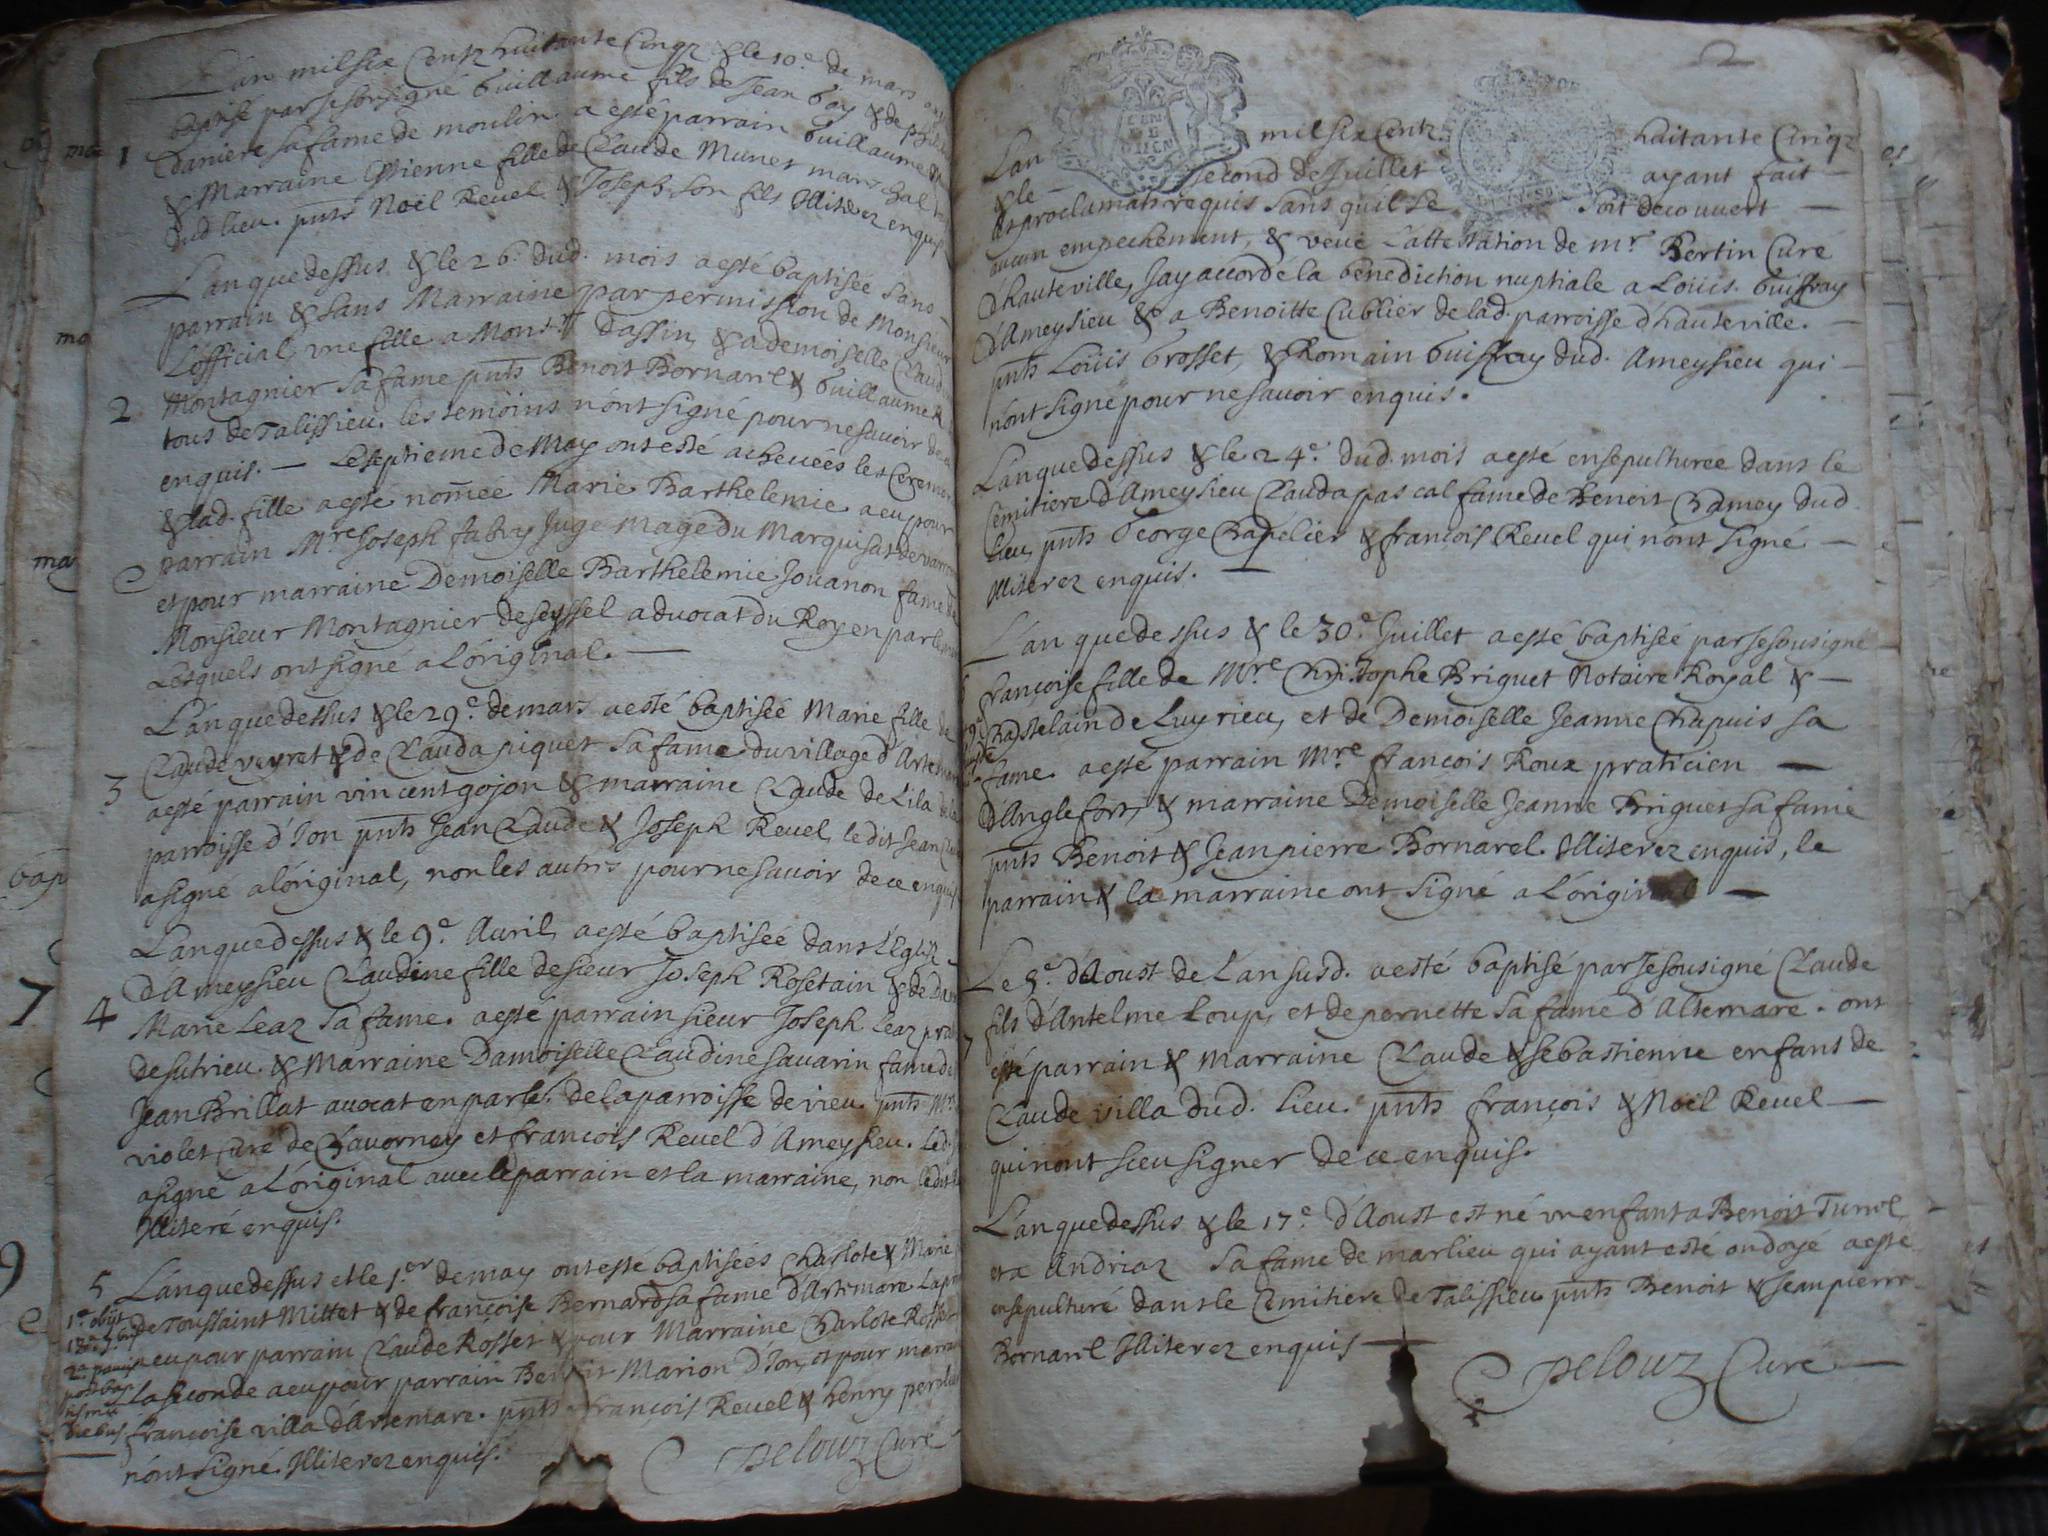 L'an mil six Centz huittante Cinqz & le 10.e de mars a esté
baptisé par Je sousigné Guillaume fils de Jean Goy & de
Daniere sa fame de moulin a esté parrain Guillaume
1
& Marraine Estienne fille de Claude Munet mareschal
dud lieu. pnts Noël Reuel & Joseph son fils Illiterez enquis
L'an que dessus & le 26.e dud. mois a esté baptisée sans
parrain & sans Marraine par permission de Monsieur
L'official, vne fille a Mons.r Dassin, & a demoiselle Claud
Montagnier sa fame pnts Benoit Bornarel & Guillaume
2
tous de Talissieu. les temoins n'ont signé pour ne sauoir de
enquis. — Le septieme de May ont esté acheuées les Ceremo
& lad. fille a esté nom̃ée Marie Barthelemie a eu pour
parrain M.re Joseph fabry Juge Mage du Marquisat de
et pour marraine Demoiselle Barthelemie Jouanon fame de
Monsieur Montagnier de seyssel aduocat du Roy en parle
Lesquels ont signé a L'original. —
L'an que dessus & le 29.e de mars a esté baptisée Marie fille de
Claude veyret & de Clauda piquet sa fame du village d'Artemare
3
a esté parrain vincent gojon & marraine Claude de Lila de la
parroisse d'Ion pnts Jean Claude & Joseph Reuel, le dit Jean
a signé a l'original, non les autres pour ne sauoir de ce enquis
L'an que dessus & le 9.e Auril, a esté baptisée dans L'Eglise
d'Ameysieu Claudine fille de sieur Joseph Rosetain & de Dam
4
Marie Leaz sa fame. a esté parrain sieur Joseph Leaz
de sutrieu. & Marraine Damoiselle Claudine sauarin fame de
Jean Brillat auocat en parle.t de la parroisse de vieu. pnts M.re
violet Curé de Chauornay et françois Reuel d'Ameysieu. Led.
a signé a L'original auec le parrain et la marraine, non ledit
Illiteré enquis.
5
L'an que dessus et le 1.er de may ont esté baptisées Charlote & Marie
de Toussaint Mittet & de françoise Bernard sa fame d'Artemare La
a eu pour parrain Claude Rosset & pour Marraine Charlote Rosset
La seconde a eu pour parrain Benoit Marion d'Ion, et pour marraine
françoise villa d'Artemare. pnts françois Reuel & henry
n'ont signé Illiterez enquis.
Delouz Curé
2
L'an mil six Centz huitante Cinqz
& le second de Juillet ayant fait —
les proclama.ns requis sans qu'il se soit decouuert —
aucun empechement, & veüe L'attestation de m.r Bertin Curé
d'hauteville, Jay accordé la benediction nuptiale a Loüis Guiffray
d'Ameysieu & a Benoitte Cublier de lad. parroisse d'hauteville. —
pnts Loüis Grosset, & Romain Guiffray dud. Ameysieu qui —
n'ont signé pour ne sauoir enquis.
L'an que dessus & le 24.e dud. mois a esté ensepulturée dans le
Cemitiere d'Ameysieu Clauda pascal fame de Benoit Chamey dud.
lieu, pnts George Chapelier & françois Reuel qui n'ont signé —
Illiterez enquis. —
L'an que dessus & le 30.e Juillet a esté baptisée par Je sousigné
françoise fille de M.re Christophe Briguet Notaire Royal & —
Chastelain de Luyrieu, et de Demoiselle Jeanne Chapuis sa
fame. a esté parrain M.re françois Roux praticien —
d'Anglefort, & marraine Demoiselle Jeanne Briguet sa fame
pnts Benoit & Jean pierre Bornarel. Illiterez enquis, le
parrain & la marraine ont signé a L'original —
Le 5.e d'Aoust de L'an susd. a esté baptisé par Je sousigné Claude
fils d'Antelme Loup, et de pernette sa fame d'Altemare. ont
7
esté parrain & Marraine Claude & sebastienne enfans de
Claude villa dud. lieu. pnts françois & Noël Reuel —
qui n'ont sceu signer de ce enquis.
L'an que dessus & le 17.e d'Aoust est né vn enfant a Benoit Turrel,
et a Andriaz sa fame de marlieu qui ayant esté ondoyé a esté
ensepulturé dans le Cemitiere de Talissieu pnts Benoit & Jean pierre
Bornarel Illiterez enquis —
Delouz Curé —